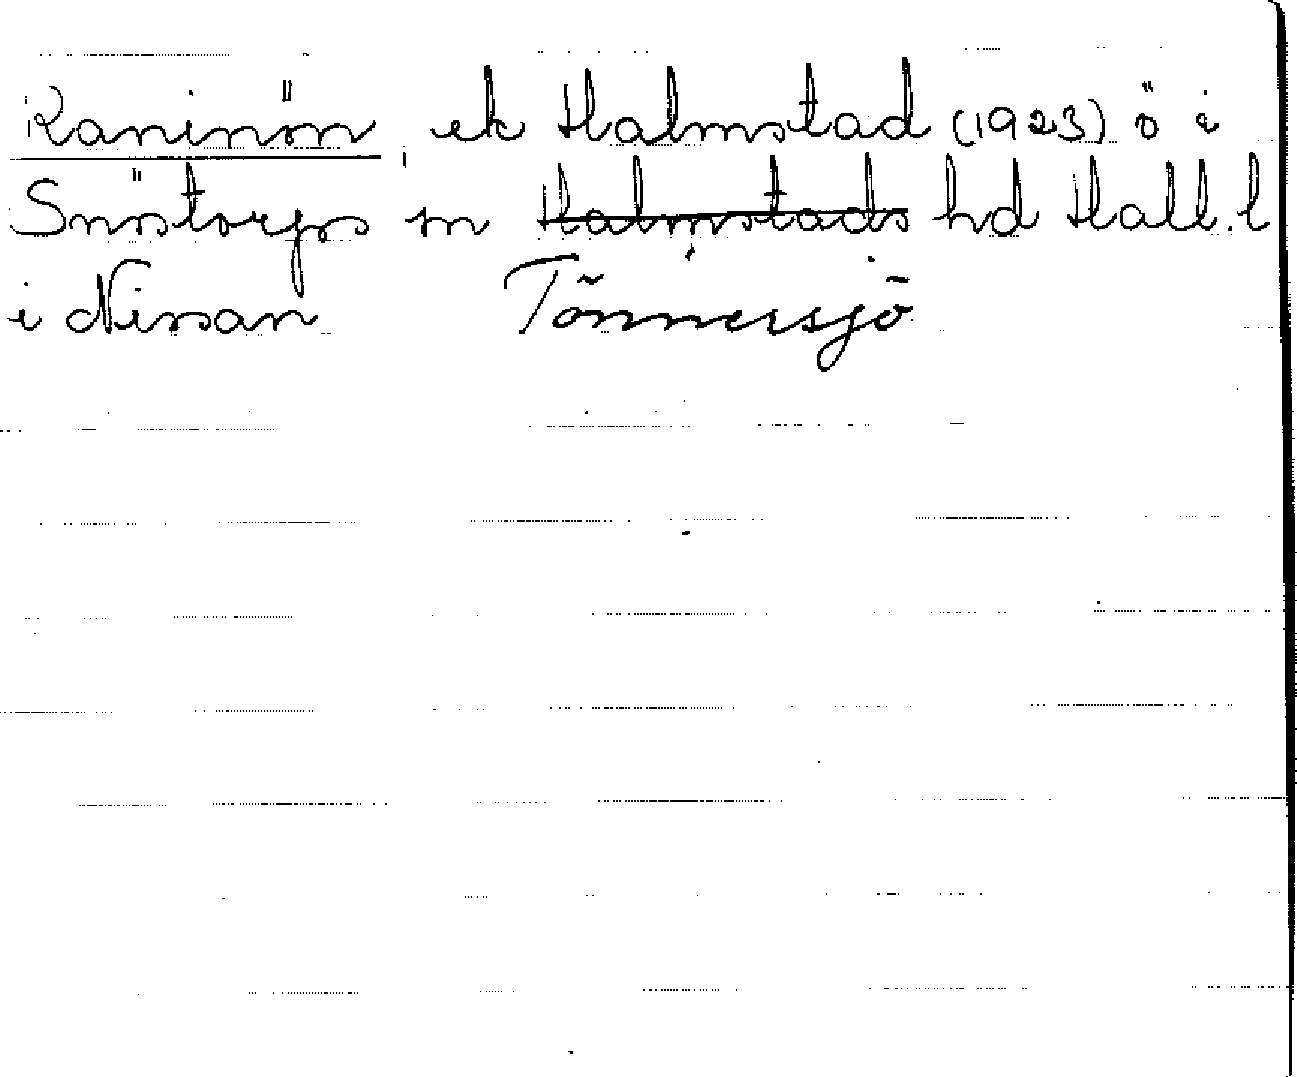 Kaninön ek Halmstad (1923) ö i
Snöstorps sn Halmstads hd Hall.l
i Nissan Tönnersjö